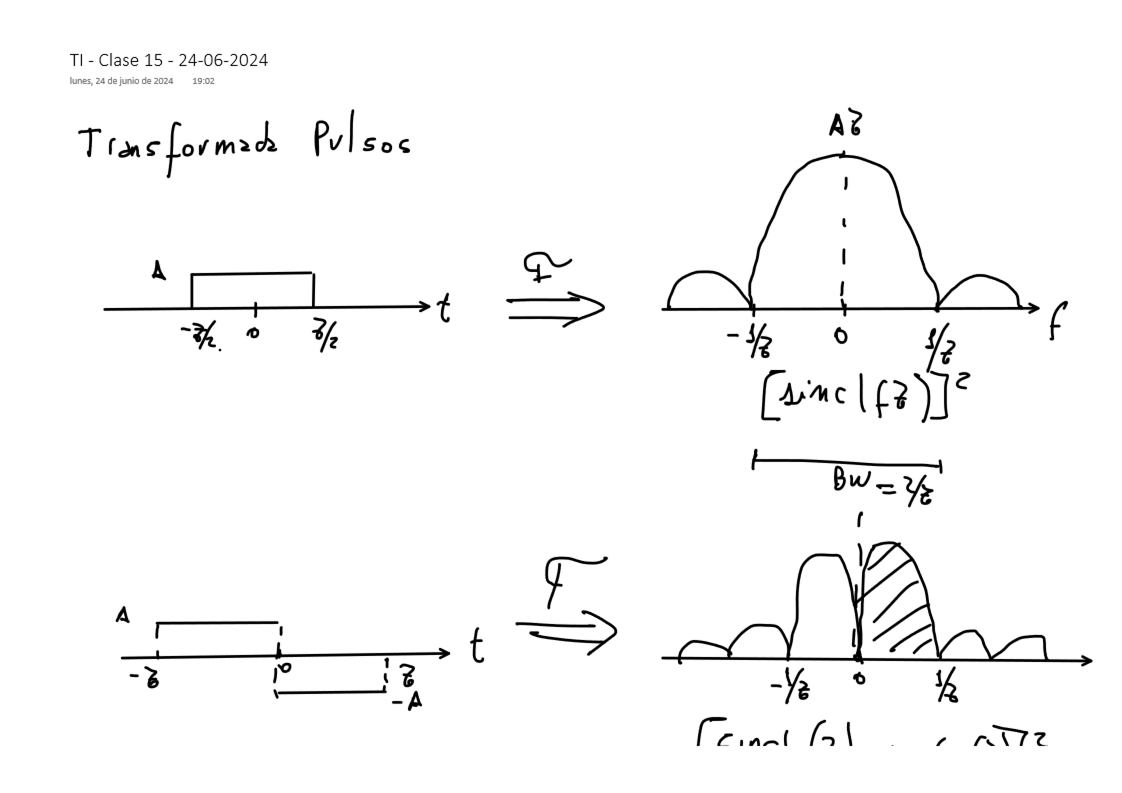 TI - Clase 15 - 24-06-2024
lunes, 24 de junio de 2024 19:02
Transformada Pulsos
Aτ
A
-τ/2 0 τ/2
t
F
-1/τ 0 1/τ
f
[sinc(fτ)]²
BW = 2/τ
A
-τ 0 τ
-A
t
F
-1/τ 0 1/τ